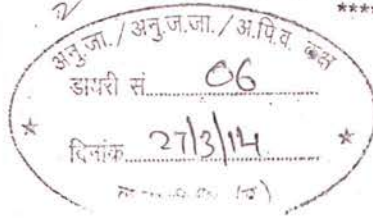 ****
अनु.जा. / अनु.ज.जा. / अ.पि.व. कक्ष
डायरी सं............ 06
दिनांक 27/3/14